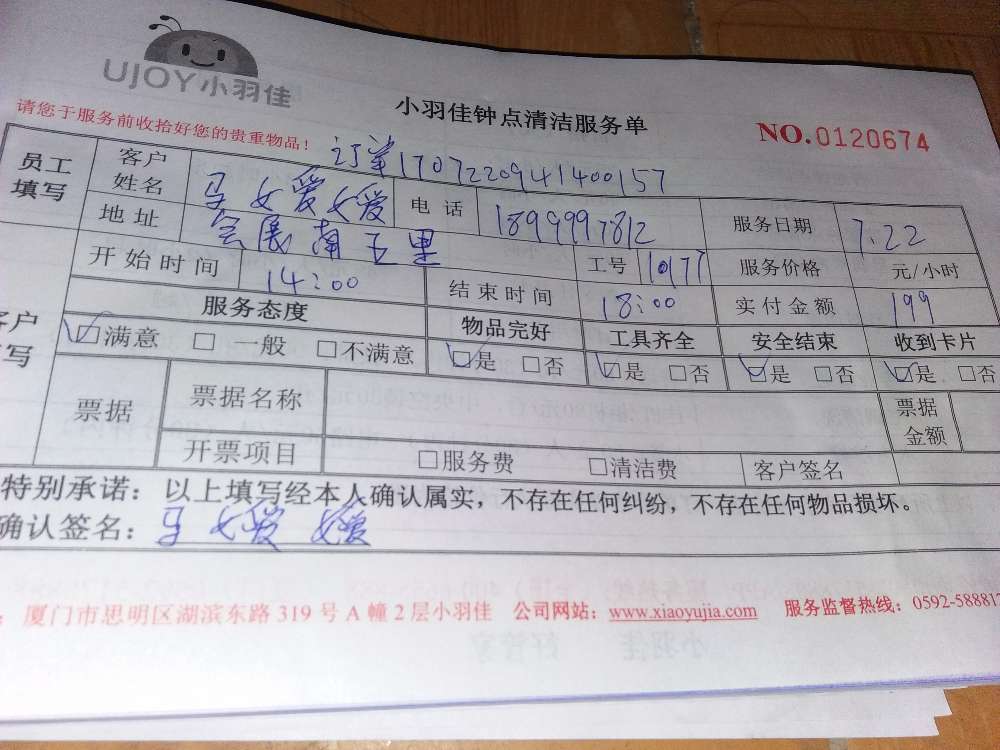 UJOY小羽佳
小羽佳钟点清洁服务单
NO.0120674
请您于服务前收拾好您的贵重物品！
订单1707220941400157
员工填写 客户姓名 马女爱嫒 电话 18999997812 服务日期 7.22
地址 会展南五里 工号 10177 服务价格 元/小时
开始时间 14:00 结束时间 18:00 实付金额 199
客户 写 服务态度 物品完好 工具齐全 安全结束 收到卡片
☑满意 □一般 □不满意 ☑是 □否 ☑是 □否 ☑是 □否 ☑是 □否
票据 票据名称 票据金额
开票项目 □服务费 □清洁费 客户签名
特别承诺：以上填写经本人确认属实，不存在任何纠纷，不存在任何物品损坏。
确认签名：马女爱嫒
：厦门市思明区湖滨东路 319 号 A 幢 2 层小羽佳 公司网站：www.xiaoyujia.com 服务监督热线：0592-588812